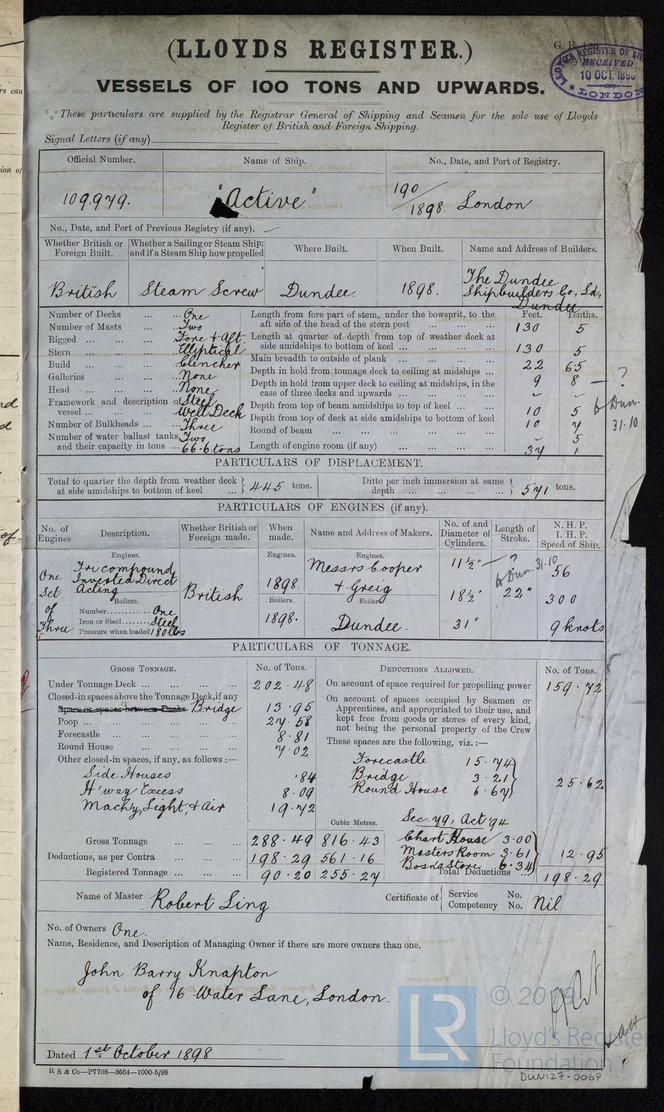 (LLOYDS REGISTER.)
VESSELS OF 100 TONS AND UPWARDS.
LLOYD'S REGISTER OF SH
RECEIVED
10 OCT. 1898
LONDON
These particulars are supplied by the Registrar General of Shipping and Seamen for the sole use of Lloyds
Register of British and Foreign Shipping.
Signal Letters (if any)
Official Number. Name of Ship. No., Date, and Port of Registry.
109,979. "Active" 190/1898. London
No., Date, and Port of Previous Registry (if any). —
Whether British or Foreign Built. Whether a Sailing or Steam Ship; and if a Steam Ship how propelled Where Built. When Built. Name and Address of Builders.
British Steam Screw Dundee. 1898. The Dundee Shipbuilders Co, Ld, Dundee
Number of Decks ... ... One
Number of Masts ... ... Two
Rigged ... ... ... Fore & Aft
Stern ... ... ... Elliptical
Build ... ... ... Clencher
Galleries ... ... ... None
Head ... ... ... None
Framework and description of vessel ... ... ... Steel Well Deck
Number of Bulkheads ... Three
Number of water ballast tanks, and their capacity in tons ... Two 66.6 tons
Feet. Tenths.
Length from fore part of stem, under the bowsprit, to the aft side of the head of the stern post 130 5
Length at quarter of depth from top of weather deck at side amidships to bottom of keel 130 5
Main breadth to outside of plank 22 65
Depth in hold from tonnage deck to ceiling at midships 9 8 — ?
Depth in hold from upper deck to ceiling at midships, in the case of three decks and upwards - -
Depth from top of beam amidships to top of keel 10 5
Depth from top of deck at side amidships to bottom of keel 10 7
Round of beam - 5
Length of engine room (if any) 37 1
Dun. 31.10
PARTICULARS OF DISPLACEMENT.
Total to quarter the depth from weather deck at side amidships to bottom of keel } 445 tons. Ditto per inch immersion at same depth } 571 tons.
PARTICULARS OF ENGINES (if any).
No. of Engines Description. Whether British or Foreign made. When made. Name and Address of Makers. No. of and Diameter of Cylinders. Length of Stroke. N. H. P. I. H. P. Speed of Ship.
Engines. Engines. Engines.
One Set of Three
Tricompound Inverted Direct Acting
British 1898. Messrs Cooper & Greig
11½" — ? 56
Dun. 31.10
18½" 22" 300
Boilers. Boilers. Boilers.
Number............ One
Iron or Steel...... Steel
Pressure when loaded 180 lbs
1898. Dundee. 31" 9 knots
PARTICULARS OF TONNAGE.
GROSS TONNAGE. No. of Tons. DEDUCTIONS ALLOWED. No. of Tons.
Under Tonnage Deck ... 202.48
Closed-in spaces above the Tonnage Deck, if any
Space or spaces between Decks Bridge 13.95
Poop ... 27.58
Forecastle ... 8.81
Round House ... 7.02
Other closed-in spaces, if any, as follows:—
Side Houses .84
H'way Excess 8.09
Mach'y, Light, & Air 19.72
On account of space required for propelling power 159.72
On account of spaces occupied by Seamen or Apprentices, and appropriated to their use, and kept free from goods or stores of every kind, not being the personal property of the Crew
These spaces are the following, viz.:—
Forecastle 15.74
Bridge 3.21
Round House 6.67
25.62
Sec. 79, Act '94
Cubic Metres.
Chart House 3.00
Masters Room 3.61
Bosn's Store 6.34
12.95
Gross Tonnage ... 288.49 816.43
Deductions, as per Contra ... 198.29 561.16
Registered Tonnage ... 90.20 255.27
Total Deductions ... 198.29
Name of Master Robert Ling Certificate of { Service No. Competency No. Nil
No. of Owners One.
Name, Residence, and Description of Managing Owner if there are more owners than one.
John Barry Knapton
of 76 Water Lane, London.
Dated 1st October 1898
R S & Co—P7708—3664—1000-5/98
LR
© 2019
Lloyd's Register
Foundation
DUN127-0069